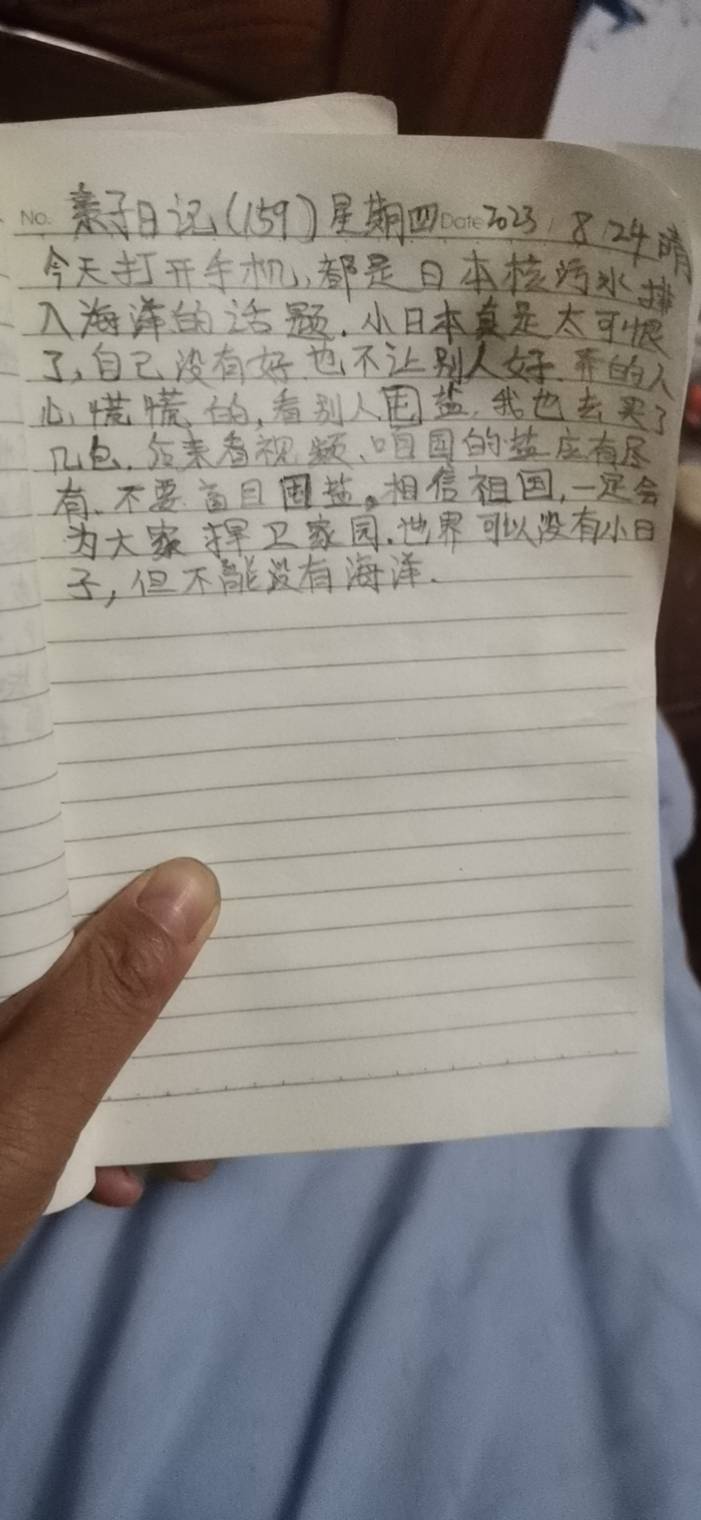 No. 素子日记(159)星期四 Date 2023 / 8 / 24 晴
今天打开手机,都是日本核污水排
入海洋的话题.小日本真是太可恨
了,自己没有好也不让别人好.弄的人
心慌慌的,看别人囤盐,我也去买了
几包.后来看视频,咱国的盐应有尽
有.不要盲目囤盐。相信祖国,一定会
为大家捍卫家园.世界可以没有小日
子,但不能没有海洋.